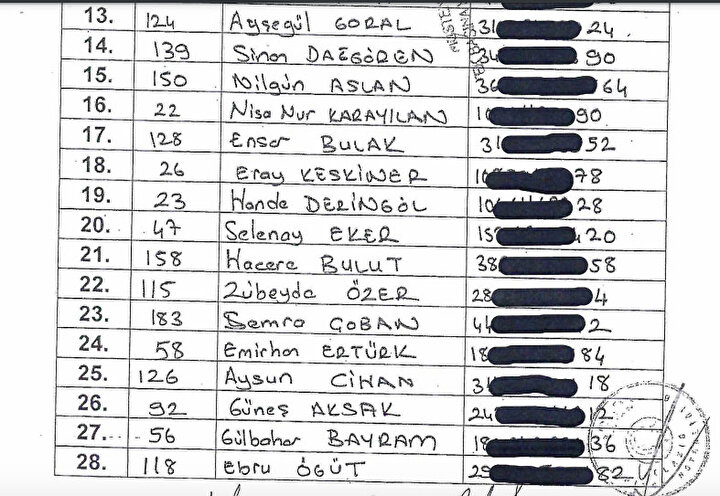 13. 124 Ayşegül GORAL 31 24
14. 139 Sinan DAĞGÖREN 34 90
15. 150 Nilgün ASLAN 36 64
16. 22 Nisa Nur KARAYILAN 10 90
17. 128 Ensar BULAK 31 52
18. 26 Eray KESKİNER 10 78
19. 23 Hande DERİNGÖL 10 28
20. 47 Selenay EKER 15 20
21. 158 Hacere BULUT 38 58
22. 115 Zübeyde ÖZER 28 4
23. 183 Semra ÇOBAN 44 2
24. 58 Emirhan ERTÜRK 18 84
25. 126 Aysun CİHAN 31 18
26. 92 Güneş AKSAK 24 12
27. 56 Gülbahar BAYRAM 18 36
28. 118 Ebru ÖĞÜT 29 82